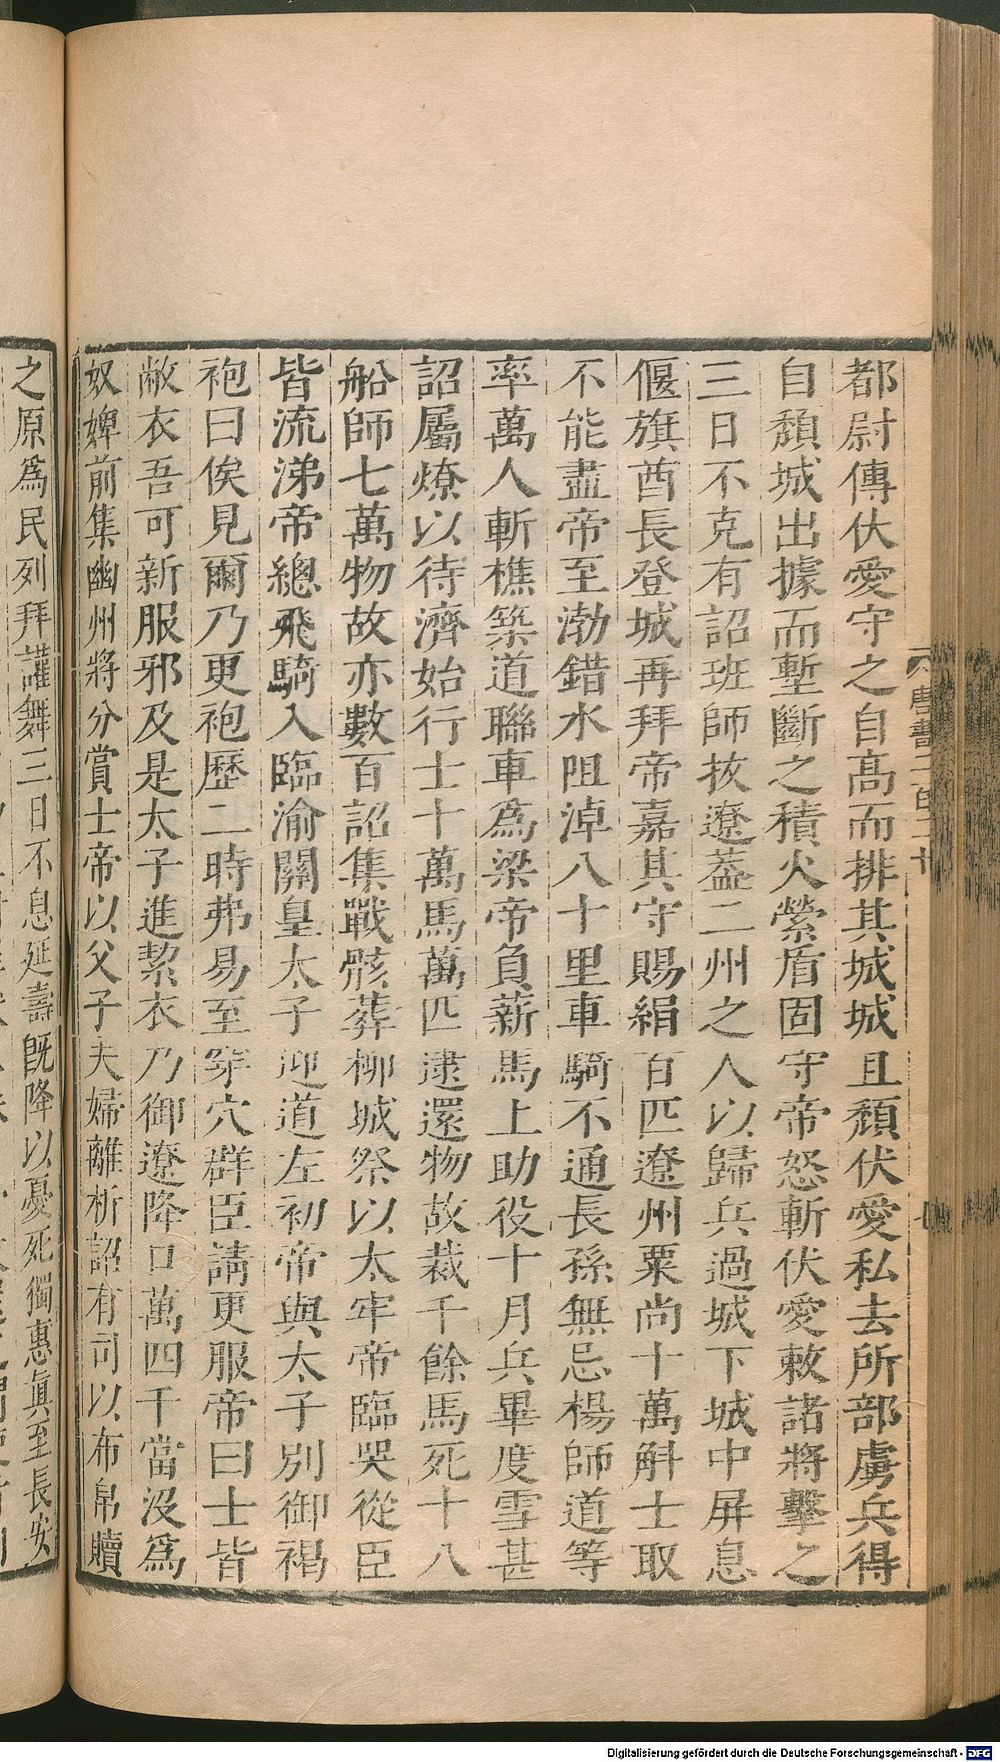 都尉傳伏愛守之自高而排其城城且頹伏愛私去所部虜兵得
自頹城出據而塹斷之積火縈盾固守帝怒斬伏愛敕諸將擊之
三日不克有詔班師拔遼蓋二州之人以歸兵過城下城中屏息
偃旗酋長登城再拜帝嘉其守賜絹百匹遼州粟尚十萬斛士取
不能盡帝至渤錯水阻淖八十里車騎不通長孫無忌楊師道等
率萬人斬樵築道聯車為梁帝負薪馬上助役十月兵畢度雪甚
詔屬燎以待濟始行士十萬馬萬匹逮還物故裁千餘馬死十八
船師七萬物故亦數百詔集戰骸葬柳城祭以太牢帝臨哭從臣
皆流涕帝總飛騎入臨渝關皇太子迎道左初帝與太子別御褐
袍曰俟見爾乃更袍歷二時弗易至穿穴群臣請更服帝曰士皆
敝衣吾可新服邪及是太子進絜衣乃御遼降口萬四千當沒為
奴婢前集幽州將分賞士帝以父子夫婦離析詔有司以布帛贖
之原為民列拜讙舞三日不息延壽既降以憂死獨惠真至長安
唐書二百二十
Digitalisierung gefördert durch die Deutsche Forschungsgemeinschaft - DFG